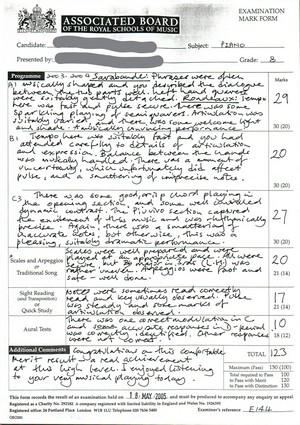 EXAMINATION
MARK FORM
ASSOCIATED BOARD
OF THE ROYAL SCHOOLS OF MUSIC
Candidate:
Subject: PIANO
Presented by:
Grade: 8
Programme 2003-2004 Sarabande: Phrases were often
Marks
A) musically shaped and you described the dialogue
between the two parts well. Left hand quavers
were suitably gently detached. Rondeaux: Tempo
here was fair and pulse secure. There was some
sparkling playing of semiquavers. Articulation was
suitably varied, and there was some welcome light
and shade. A musically convincing performance
29
30 (20)
B) Tempo here was suitable and you had
attended carefully to details of articulation
and expression. Balance between the hands
was musically handled. There was a amount of
uncertainty, which unfortunately did affect
pulse, and a smattering of imprecise notes.
20
30 (20)
C3 There was some good, crisp chord playing in
the opening section, and some well controlled
dynamic contrast. The Piu vivo section, captured
the excitement of this music and was rhythmically
precise. Again, there was a smattering of
inaccurate notes, but otherwise, this was a
pleasing, suitably dramatic performance.
27
30 (20)
Scales and Arpeggios
or
Traditional Song
Scales were well prepared and were
played at an appropriate pace. All were
rather uneven. Arpeggios were fast and
safe - well done.
20
21 (14)
Sight Reading
(and Transposition)
or
Quick Study
Notes were sometimes read correctly
and key usually observed. Pulse
was steady and some marks of
articulation observed.
17
21 (14)
Aural Tests
There was one correct modulation in C
and some accurate responses in D - period
was correctly identified. Other responses
were not correct.
10
18 (12)
Additional Comments Congratulations on this comfortable
merit result - a real achievement
at this high level. I enjoyed listening
to your very musical playing today.
TOTAL 123
Maximum (Pass) 150 (100)
Total required to Pass 100
to Pass with Merit 120
to Pass with Distinction 130
This form records the result of an examination held on 18 MAY 2005 and must be produced to accompany any enquiry or appeal
Registered as a Charity No. 292182 A company limited by guarantee registered in England and Wales No. 1926395
Registered office: 24 Portland Place London W1B 1LU Telephone 020 7636 5400
Examiner's reference E1414